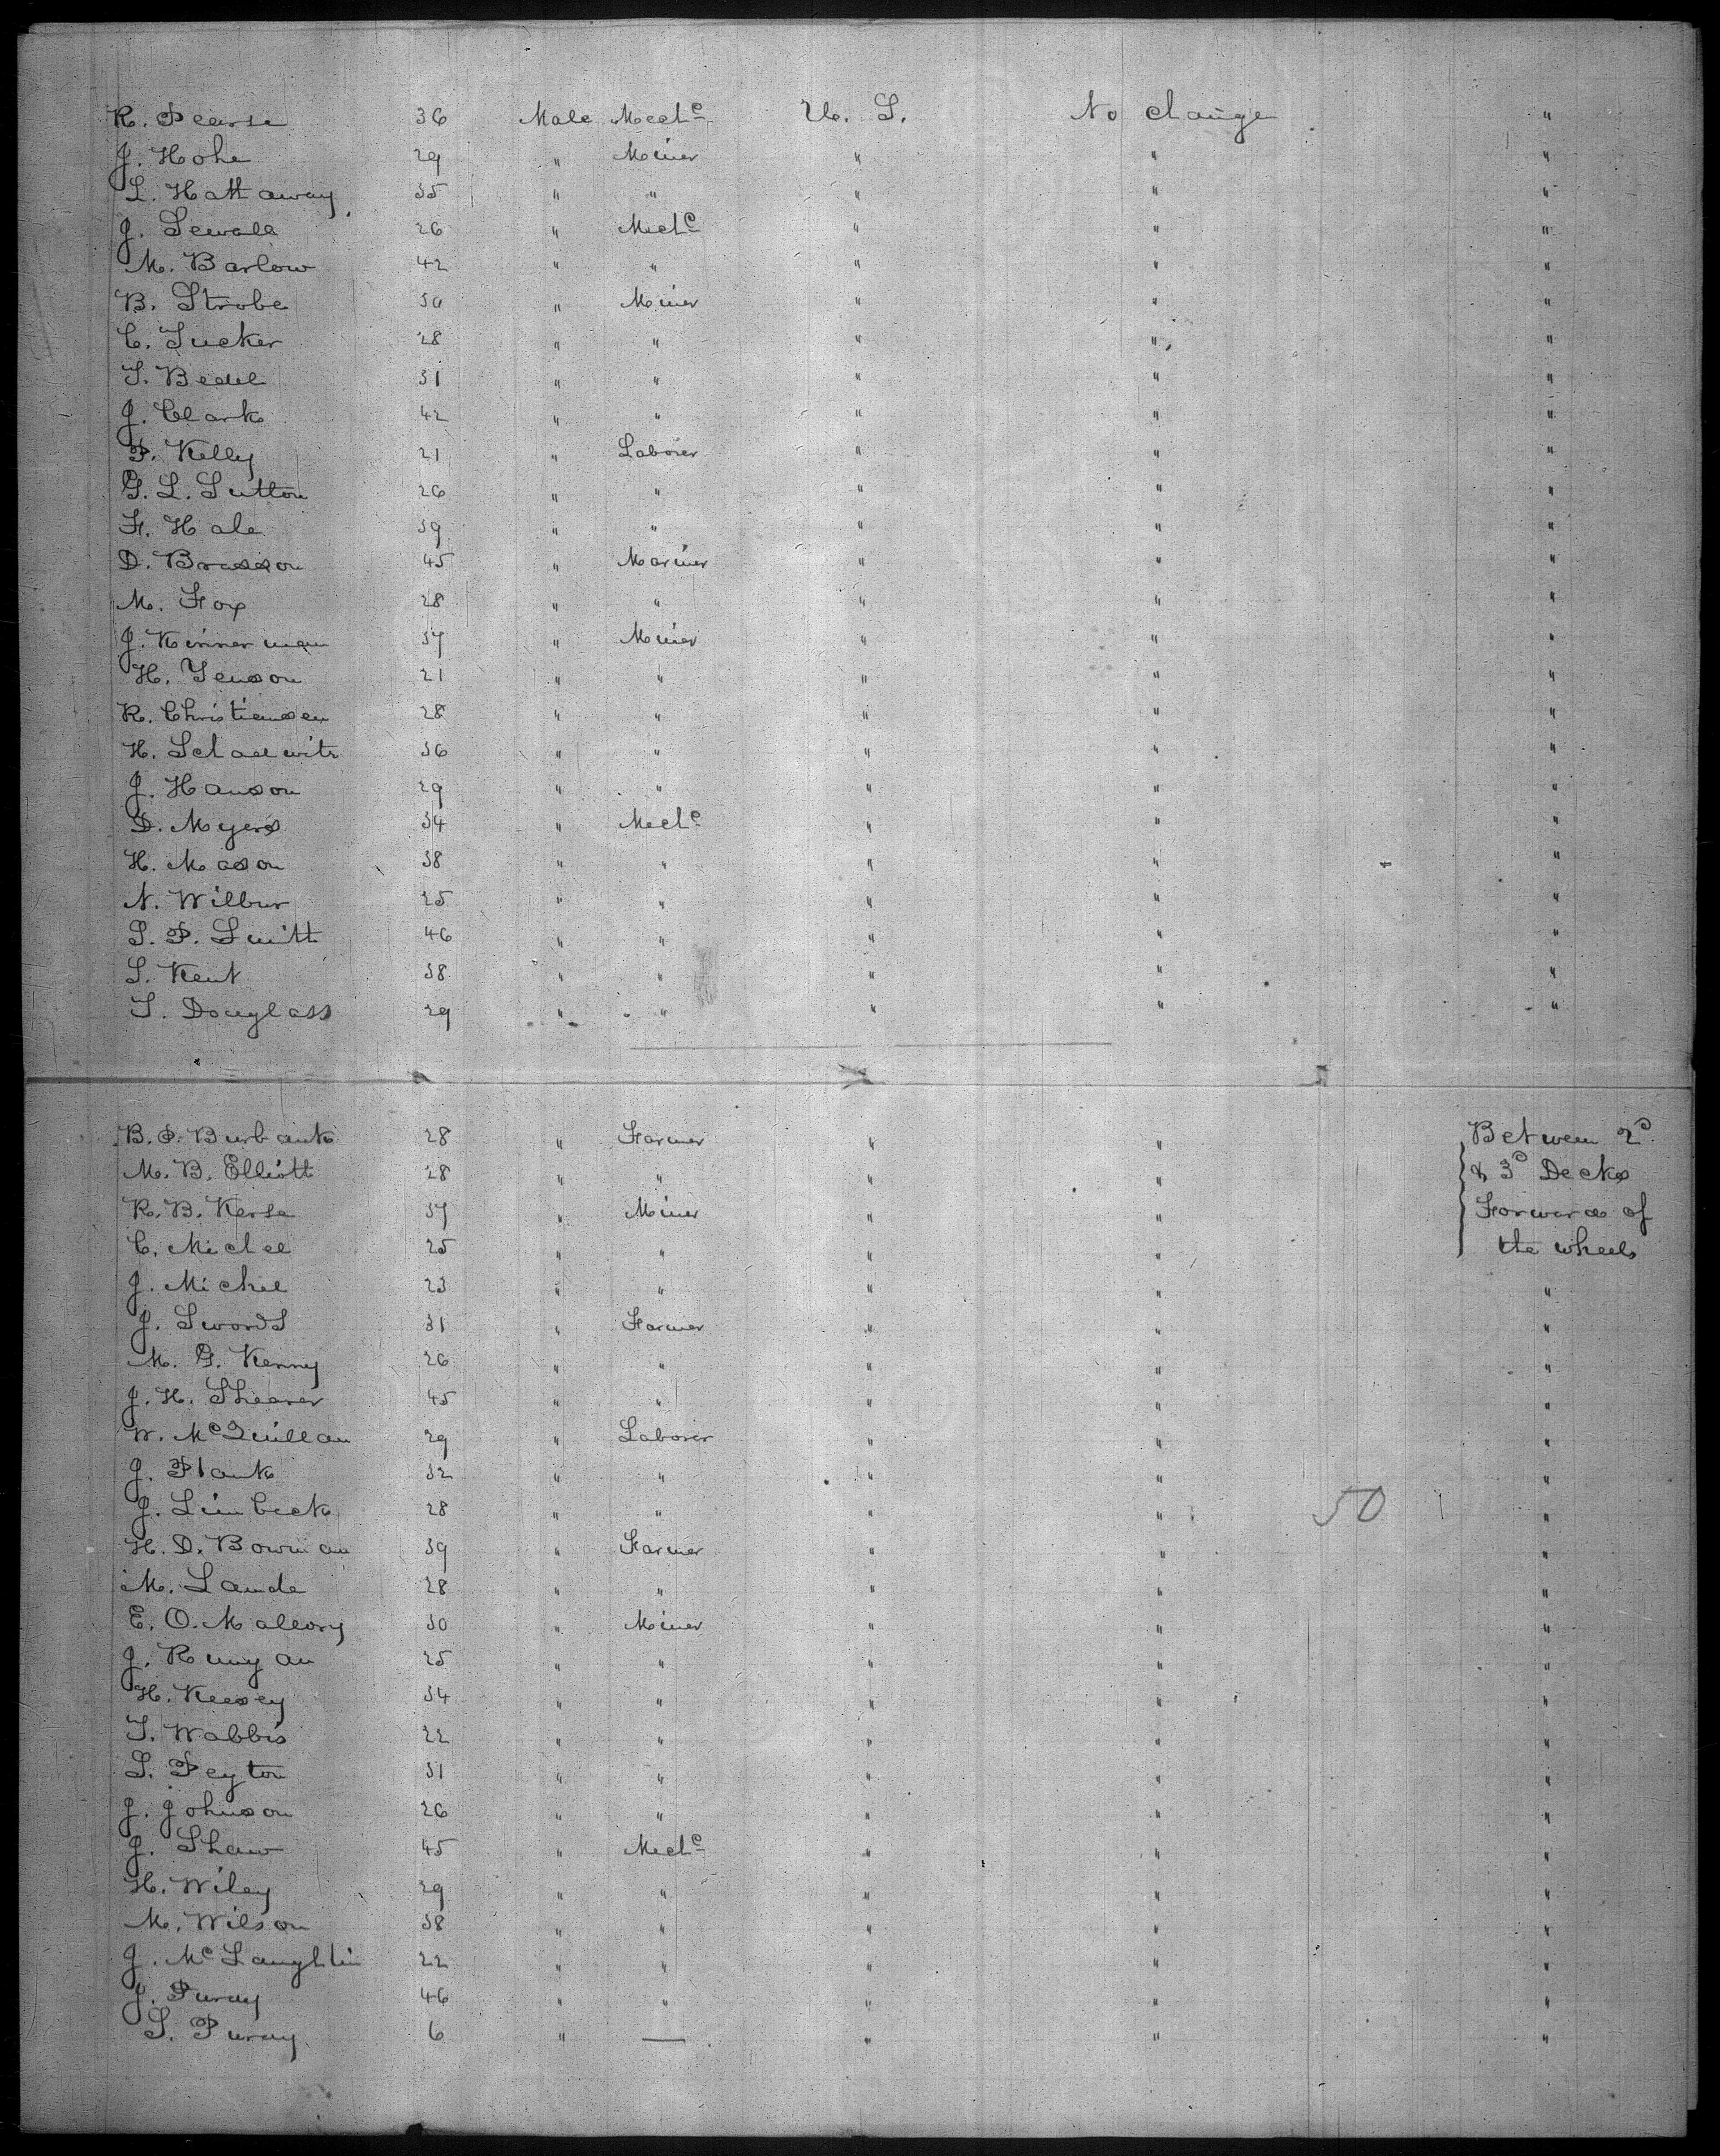 R. Pearse 36 Male Mechc U. S. No change "
J. Hohe 29 " Miner " " "
L. Hattaway 35 " " " " "
J. Sewall 26 " Mechc " " "
M. Barlow 42 " " " " "
B. Strobe 30 " Miner " " "
C. Tucker 28 " " " " "
T. Bedel 31 " " " " "
J. Clark 42 " " " " "
P. Kelly 21 " Laborer " " "
G. L. Sutton 26 " " " " "
F. Hale 39 " " " " "
D. Brasson 45 " Mariner " " "
M. Fox 28 " " " " "
J. Kinnerman 37 " Miner " " "
H. Jenson 21 " " " " "
R. Christiansen 28 " " " " "
H. Schallwitz 36 " " " " "
J. Hanson 29 " " " " "
D. Myers 34 " Mechc " " "
H. Mason 38 " " " " "
N. Wilbur 25 " " " " "
S. P. Smith 46 " " " " "
S. Kent 38 " " " " "
T. Douglass 29 " " " " "
B. S. Burbank 28 " Farmer " " Between 2d
M. B. Elliott 28 " " " " & 3d Decks
R. B. Kerse 37 " Miner " " Forward of
C. Michel 25 " " " " the wheels
J. Michel 23 " " " " "
J. Swords 31 " Farmer " " "
M. G. Kenny 26 " " " " "
J. H. Shearer 45 " " " " "
W. McQuillan 29 " Laborer " " "
J. Plank 32 " " " " "
J. Limbeck 28 " " " " 50 "
H. D. Bowman 39 " Farmer " " "
M. Lande 28 " " " " "
E. O. Mallory 30 " Miner " " "
J. Runyan 25 " " " " "
H. Keesey 34 " " " " "
T. Wabbis 22 " " " " "
S. Peyton 31 " " " " "
J. Johnson 26 " " " " "
J. Shaw 45 " Mechc " " "
H. Wiley 29 " " " " "
M. Wilson 38 " " " " "
J. McLaughlin 22 " " " " "
J. Puray 46 " " " " "
S. Puray 6 " — " " "